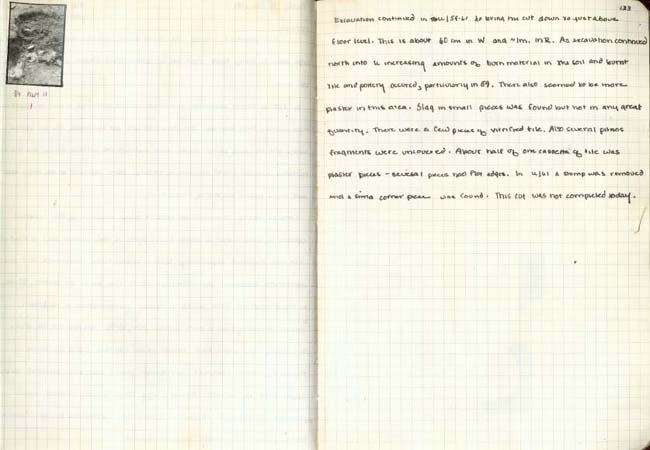 1
133
Excavation continued in /59-61 to bring the cut down to just above
floor level. This is about 60 cm in W and ~1m. in R. As excavation continued
north into U increasing amounts of born material in the soil and burnt
tile and pottery occured, particularly in 59. There also seemed to be more
plaster in this area. Slag in small pieces was found but not in any great
quantity. There were a few pieces of vitrified tile. Also several pithos
fragments were uncovered. About half of one cassetta of tile was
plaster pieces - several pieces had flat edges. In U/61 a stump was removed
and a sima corner piece was found. This cut was not completed today.